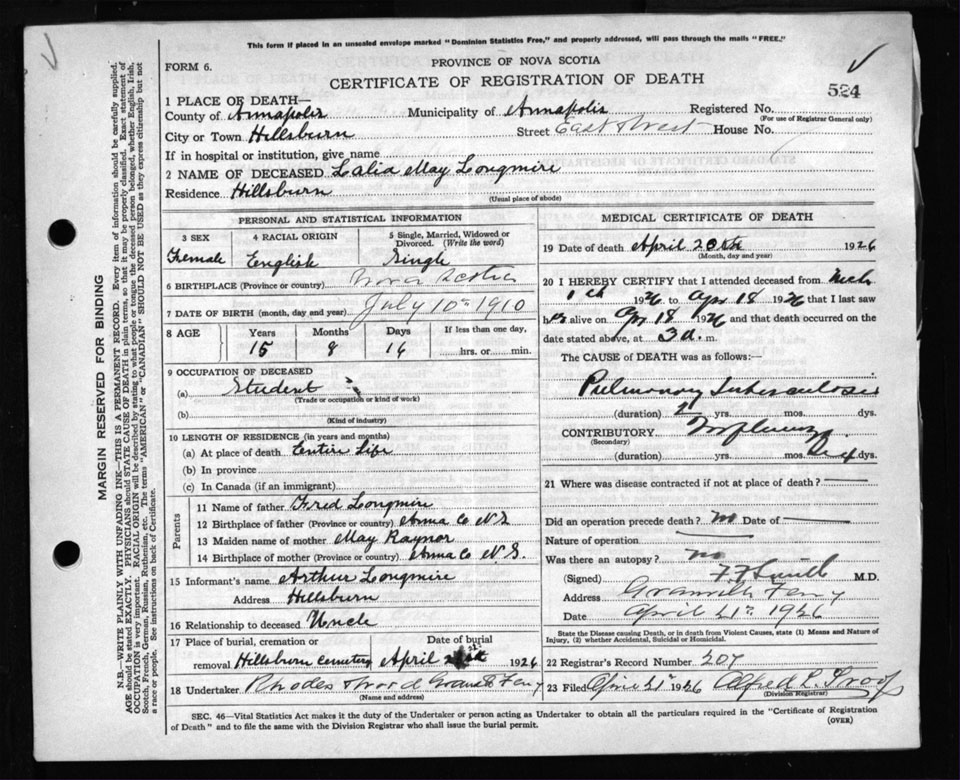 This form if placed in an unsealed envelope marked "Dominion Statistics Free," and properly addressed, will pass through the mails "FREE."
FORM 6.
PROVINCE OF NOVA SCOTIA
CERTIFICATE OF REGISTRATION OF DEATH
524
1 PLACE OF DEATH—
County of Annapolis Municipality of Annapolis Registered No.
(For use of Registrar General only)
City or Town Hillsburn Street East West House No.
If in hospital or institution, give name
2 NAME OF DECEASED Lalia May Longmire
Residence Hillsburn
(Usual place of abode)
PERSONAL AND STATISTICAL INFORMATION
3 SEX 4 RACIAL ORIGIN 5 Single, Married, Widowed or Divorced. (Write the word)
Female English Single
6 BIRTHPLACE (Province or country) Nova Scotia
7 DATE OF BIRTH (month, day and year) July 10th 1910
8 AGE Years Months Days If less than one day,
15 8 16 hrs. or min.
9 OCCUPATION OF DECEASED
(a) Student
(Trade or occupation or kind of work)
(b)
(Kind of industry)
10 LENGTH OF RESIDENCE (in years and months)
(a) At place of death Entire Life
(b) In province
(c) In Canada (if an immigrant)
Parents
11 Name of father Fred Longmire
12 Birthplace of father (Province or country) Anna Co N.S.
13 Maiden name of mother May Raynor
14 Birthplace of mother (Province or country) Anna Co N.S.
15 Informant's name Arthur Longmire
Address Hillsburn
16 Relationship to deceased Uncle
17 Place of burial, cremation or Date of burial
removal Hillsburn cemetery April 21st 1926
18 Undertaker Rhodes Granville Ferry
(Name and address)
MEDICAL CERTIFICATE OF DEATH
19 Date of death April 20th 1926
(Month, day and year)
20 I HEREBY CERTIFY that I attended deceased from Mch
1st 1926 to Apr 18 1926 that I last saw
her alive on Apr 18 1926 and that death occurred on the
date stated above, at 3 a. m.
The CAUSE of DEATH was as follows:
Pulmonary Tuberculosis
(duration) yrs. mos. dys.
CONTRIBUTORY Influenza
(Secondary)
(duration) yrs. mos. dys.
21 Where was disease contracted if not at place of death?
Did an operation precede death? no Date of
Nature of operation
Was there an autopsy? no
(Signed) F F Smith M.D.
Address Granville Ferry
Date April 21st 1926
State the Disease causing Death, or in death from Violent Causes, state (1) Means and Nature of Injury, (2) whether Accidental, Suicidal or Homicidal.
22 Registrar's Record Number 207
23 Filed April 21st 1926 Alfred L. Troop
(Division Registrar)
SEC. 46—Vital Statistics Act makes it the duty of the Undertaker or person acting as Undertaker to obtain all the particulars required in the "Certificate of Registration
of Death" and to file the same with the Division Registrar who shall issue the burial permit.
(OVER)
MARGIN RESERVED FOR BINDING
N.B.—WRITE PLAINLY WITH UNFADING INK—THIS IS A PERMANENT RECORD. Every item of information should be carefully supplied.
AGE should be stated EXACTLY. PHYSICIANS should STATE CAUSE OF DEATH in plain terms, so that it may be properly classified. Exact statement of
OCCUPATION is very important. RACIAL ORIGIN will be described by stating to what people or tongue the deceased person belonged, whether English, Irish,
Scotch, French, German, Russian, Ruthenian, etc. The terms "AMERICAN" or "CANADIAN" SHOULD NOT BE USED as they express citizenship but not
a race or people. See instructions on back of Certificate.